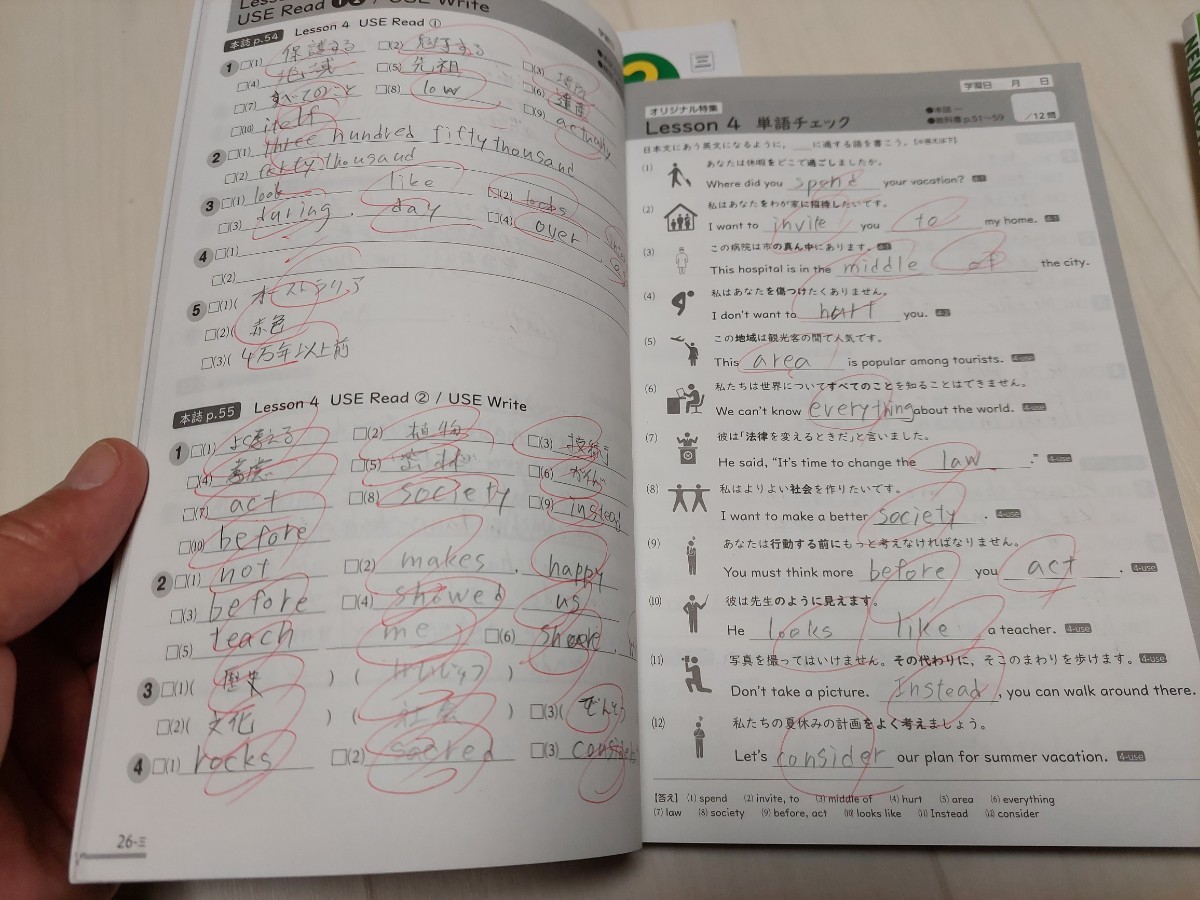 USE Read ❶❷ / USE Write
本誌 p.54 Lesson 4 USE Read ①
1 □(1) 保護する □(2) 魅了する □(3)
□(4) 地域 □(5) 先祖 □(6) 遺産
□(7) すべてのこと □(8) low □(9) actually
□(10) itself
2 □(1) three hundred fifty thousand
□(2) forty thousand
3 □(1) look like □(2) looks
□(3) during , day □(4) over
4 □(1)
□(2)
5 □(1)( オーストラリア
□(2)( 赤色
□(3)( 4万年以上前
本誌 p.55 Lesson 4 USE Read ② / USE Write
1 □(1) よく考える □(2) 植物 □(3)
□(4) □(5) □(6)
□(7) act □(8) society □(9) instead
□(10) before
2 □(1) not □(2) makes , happy
□(3) before □(4) showed us
□(5) teach me □(6)
3 □(1)( 歴史 ) ( )
□(2)( 文化 ) ( 社会 ) □(3)(
4 □(1) rocks □(2) sacred □(3) consider
26-三
学習日 月 日
オリジナル特集
Lesson 4 単語チェック
●本誌 ―
●教科書 p.51〜59
/12問
日本文にあう英文になるように，＿に適する語を書こう。【※答えは下】
(1) あなたは休暇をどこで過ごしましたか。
Where did you spend your vacation? 4-1
(2) 私はあなたをわが家に招待したいです。
I want to invite you to my home. 4-1
(3) この病院は市の真ん中にあります。 4-1
This hospital is in the middle of the city.
(4) 私はあなたを傷つけたくありません。
I don't want to hurt you. 4-2
(5) この地域は観光客の間で人気です。
This area is popular among tourists. 4-use
(6) 私たちは世界についてすべてのことを知ることはできません。
We can't know everything about the world. 4-use
(7) 彼は「法律を変えるときだ」と言いました。
He said, "It's time to change the law ." 4-use
(8) 私はよりよい社会を作りたいです。
I want to make a better society . 4-use
(9) あなたは行動する前にもっと考えなければなりません。
You must think more before you act . 4-use
(10) 彼は先生のように見えます。
He looks like a teacher. 4-use
(11) 写真を撮ってはいけません。その代わりに，そこのまわりを歩けます。 4-use
Don't take a picture. Instead , you can walk around there.
(12) 私たちの夏休みの計画をよく考えましょう。
Let's consider our plan for summer vacation. 4-use
【答え】 (1) spend (2) invite, to (3) middle of (4) hurt (5) area (6) everything
(7) law (8) society (9) before, act (10) looks like (11) Instead (12) consider